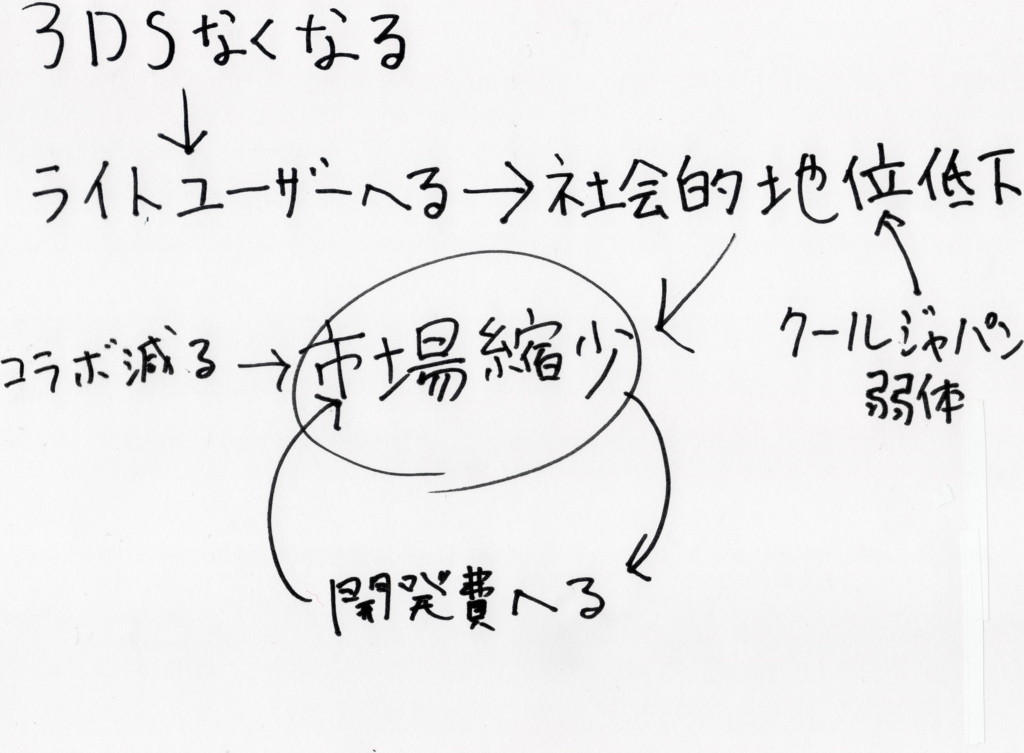 3DSなくなる
↓
ライトユーザーへる→社会的地位低下
コラボ減る→市場縮少
クールジャパン
弱体
開発費へる